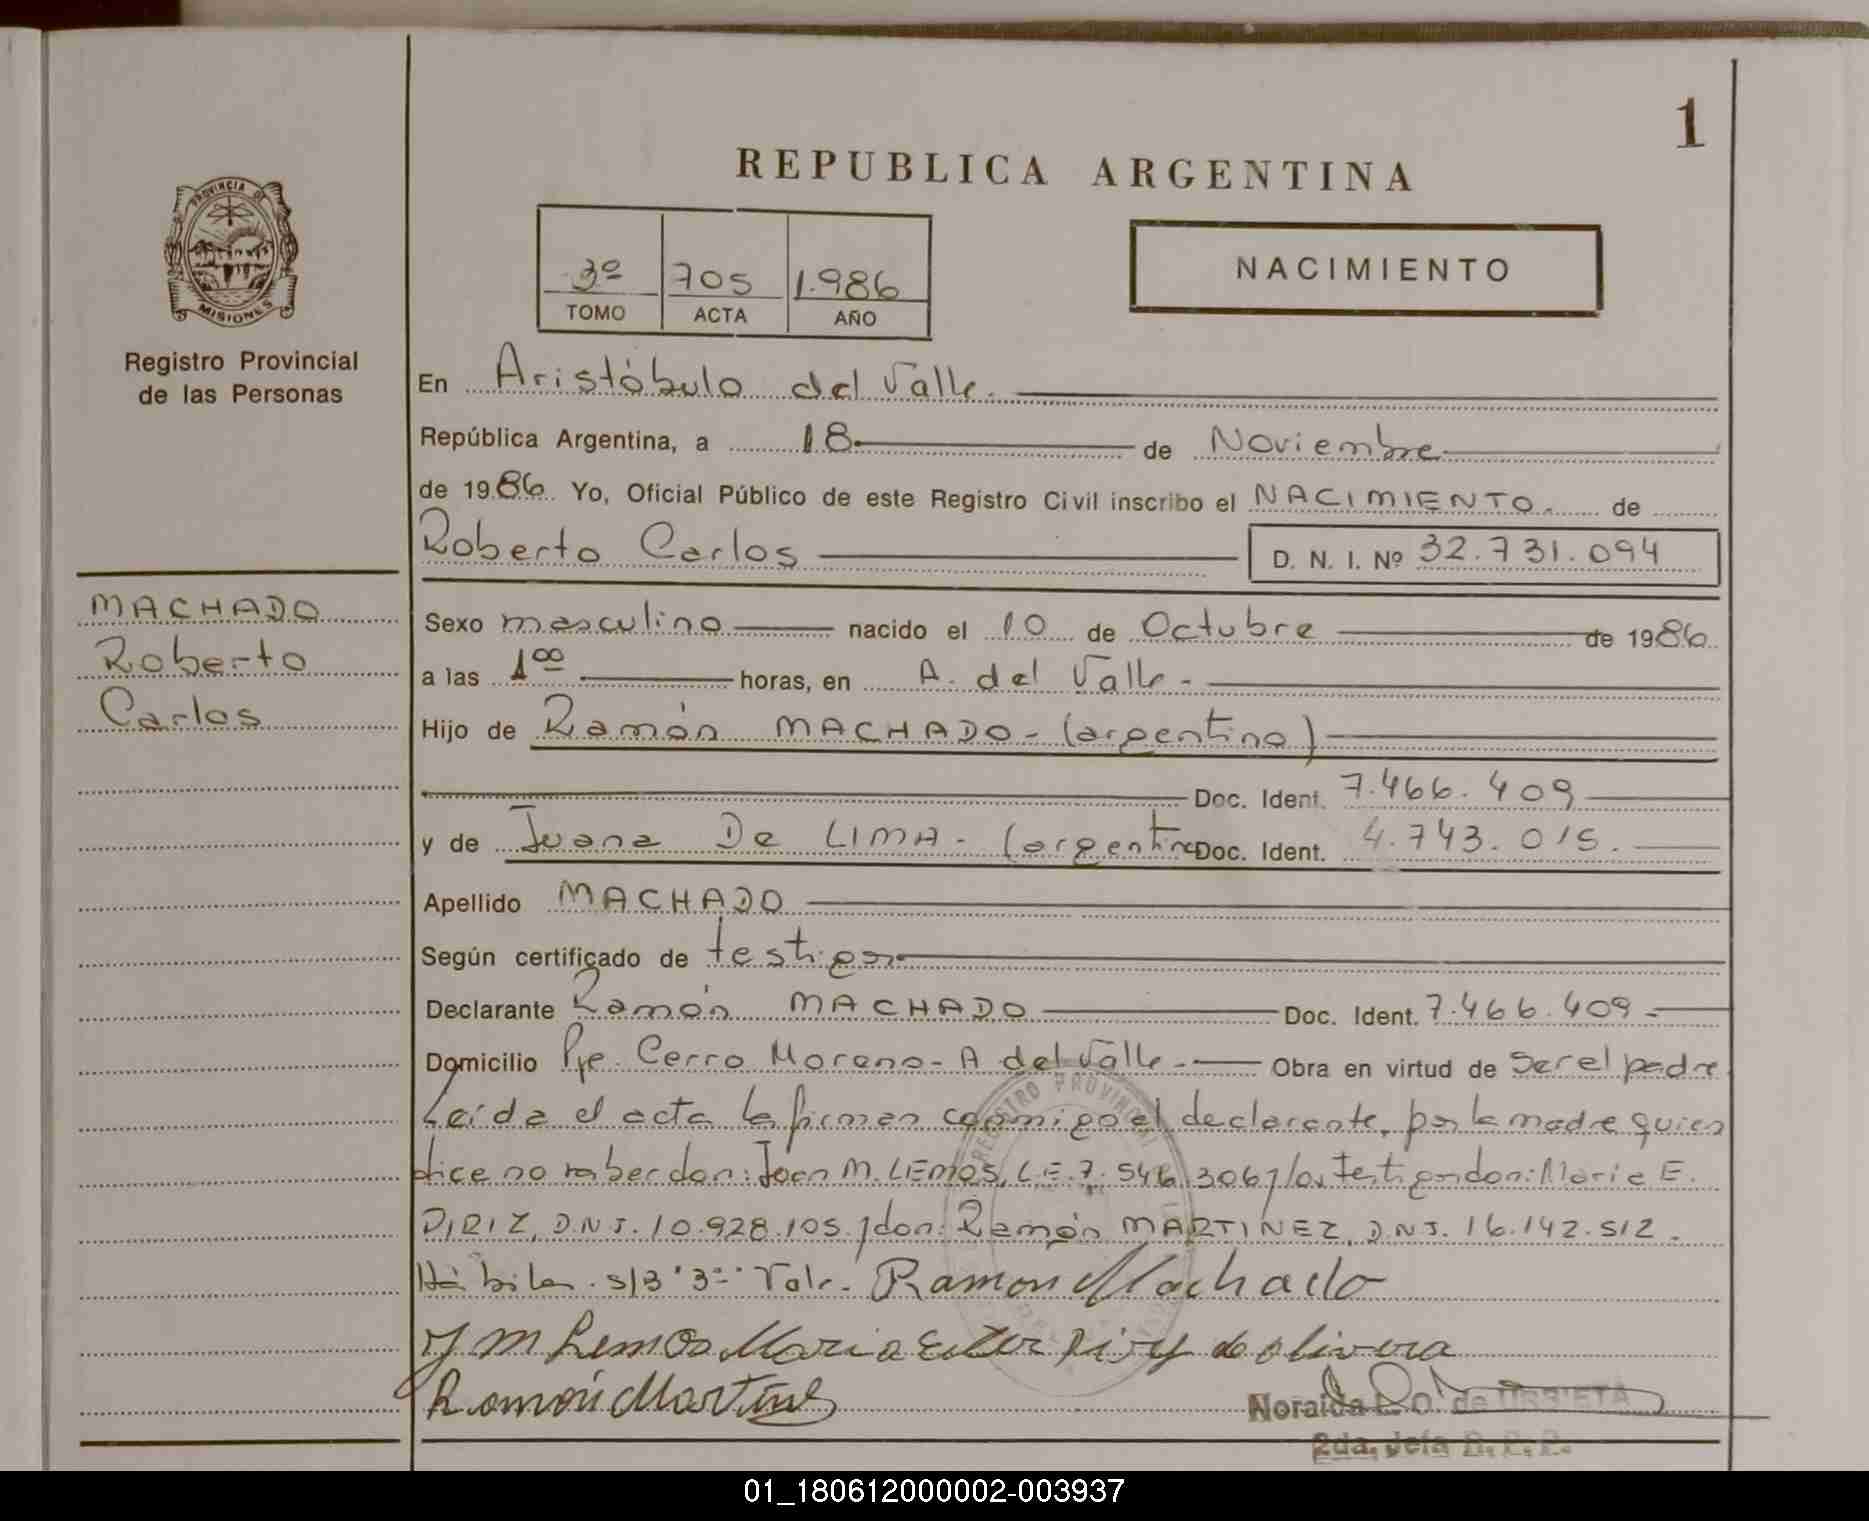 1
REPUBLICA ARGENTINA
PROVINCIA DE
MISIONES
Registro Provincial
de las Personas
3º 705 1.986
TOMO ACTA AÑO
NACIMIENTO
En Aristóbulo del Valle.
República Argentina, a 18 de Noviembre
de 1986 Yo, Oficial Público de este Registro Civil inscribo el NACIMIENTO. de
Roberto Carlos D. N. I. Nº 32.731.094
MACHADO
Roberto
Carlos
Sexo masculino nacido el 10 de Octubre de 1986
a las 1 00 horas, en A. del Valle -
Hijo de Ramón MACHADO - (argentino)
Doc. Ident. 7.466.409
y de Juana De LIMA - (argentina Doc. Ident. 4.743.015.
Apellido MACHADO
Según certificado de testigos
Declarante Ramón MACHADO Doc. Ident. 7.466.409 -
Domicilio Pje. Cerro Moreno - A del Valle - Obra en virtud de ser el padre
Leída el acta la firman conmigo el declarante, por la madre quien
dice no saber don: Juan M. LEMOS, L.E. 7.546.306 y los testigos don: Maria E.
DIRIZ, D.N.I. 10.928.105. y don: Ramón MARTINEZ, D.N.I. 16.142.512.
Hábiles. S/B "3º" Vale. Ramon Machado
J M Lemos Maria Ester de olivera
Ramón Martinez
REGISTRO PROVINCIAL
Noraida L. O. de
2da. Jefa R. P. P.
01_180612000002-003937